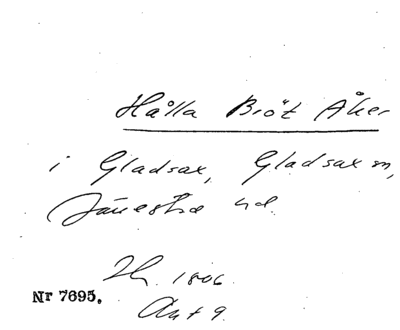 Hålla Bröt Åker
i Gladsax, Gladsax sn,
Järrestad hd.
Lh. 1806
Akt 9.
Nr 7695.